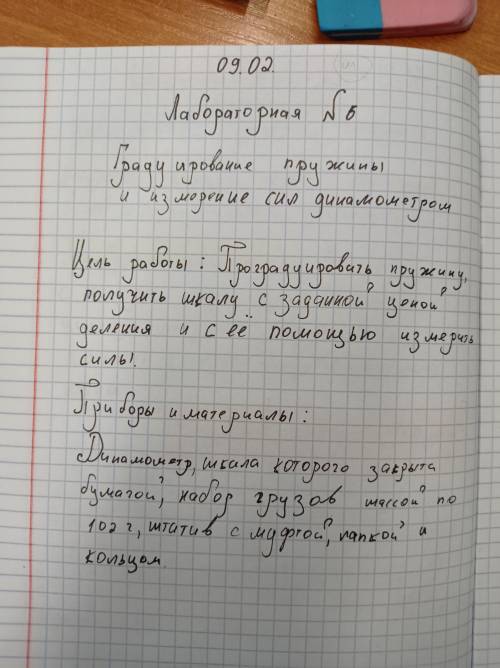 09.02.
Лабораторная №6
Градуирование пружины
и изморение сил динамометром
Цель работы: Проградуировать пружину,
получить шкалу с заданной ценой
деления и с её помощью измерить
силы.
Приборы и материалы:
Динамометр, шкала которого закрыта
бумагой, набор грузов массой по
102 г, штатив с муфтой, лапкой и
кольцом.